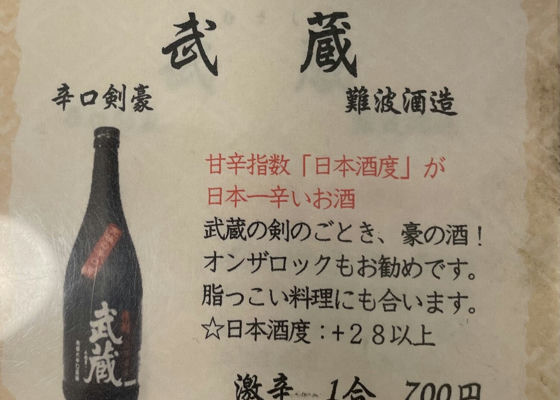 武蔵
辛口剣豪
難波酒造
甘辛指数「日本酒度」が
日本一辛いお酒
武蔵の剣のごとき、豪の酒！
オンザロックもお勧めです。
脂っこい料理にも合います。
☆日本酒度：＋２８以上
激辛 1合 700円
武蔵